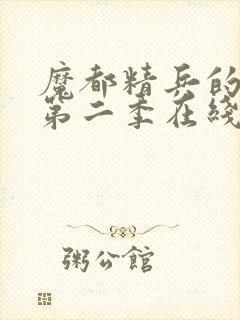 魔都精兵的
第二季在綫
粥公館